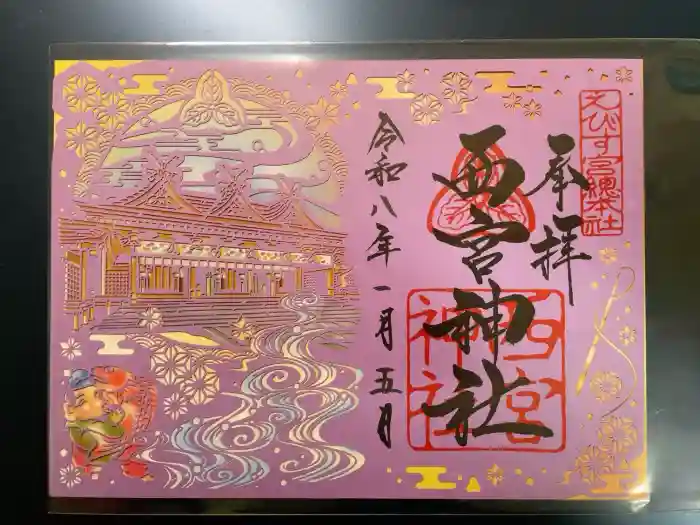 えびす宮総本社
奉拝
西宮神社
西宮神社
令和八年一月五月